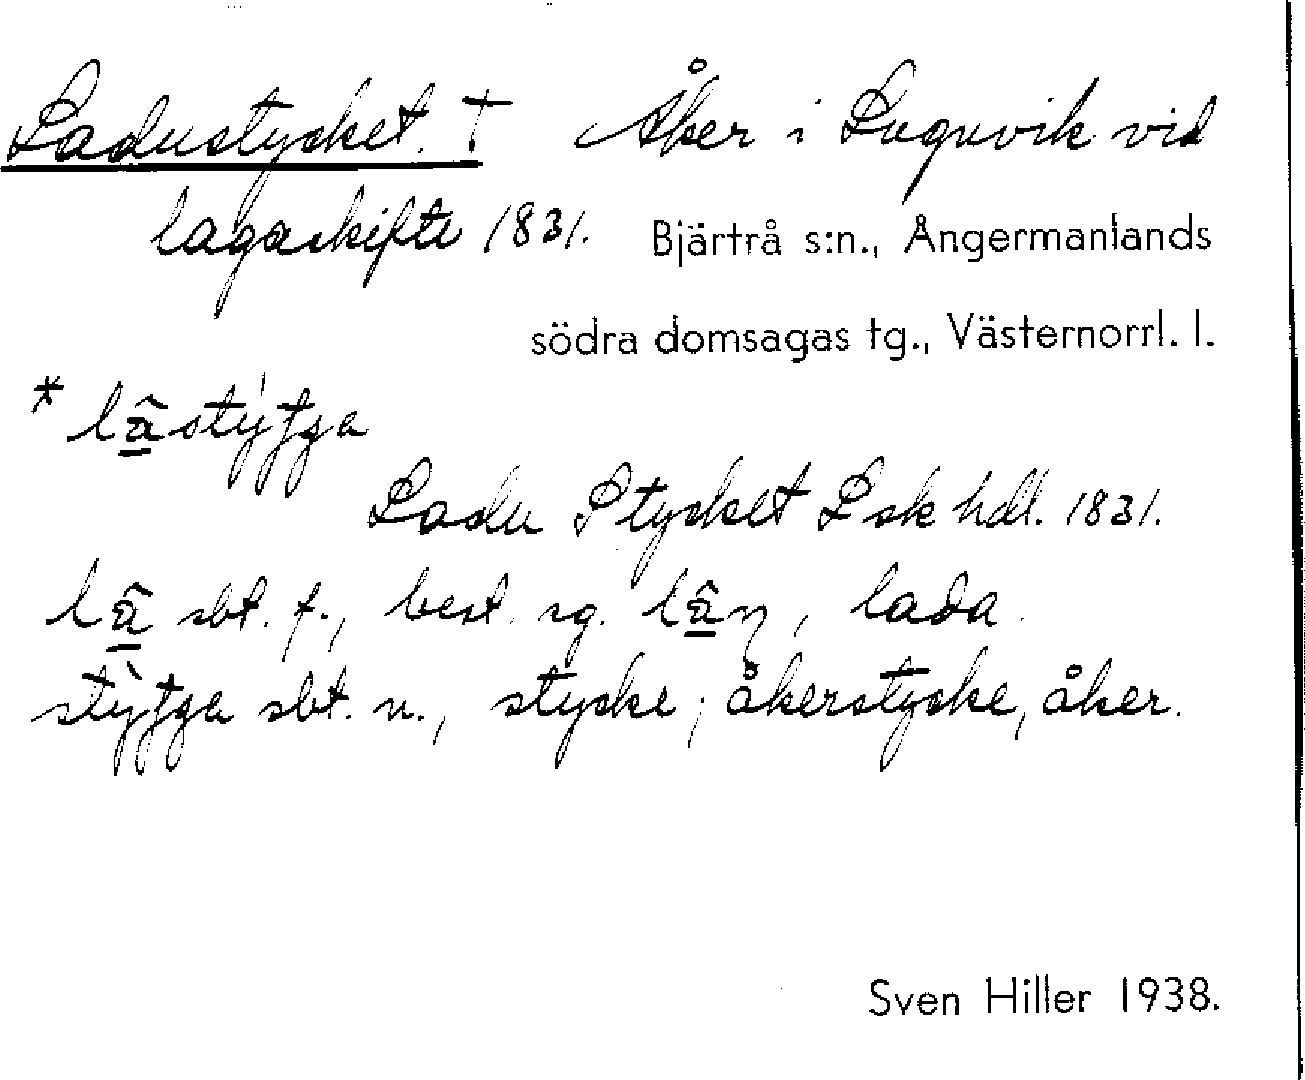 Ladustycket. † Åker i Lugnvik vid
lagaskifte 1831. Bjärtrå s:n., Ångermanlands
södra domsagas tg., Västernorrl. l.
Ladu Stycket Lsk hdl. 1831.
sbt. f., best. sg. lada.
sbt. n., stycke; åkerstycke, åker.
Sven Hiller 1938.